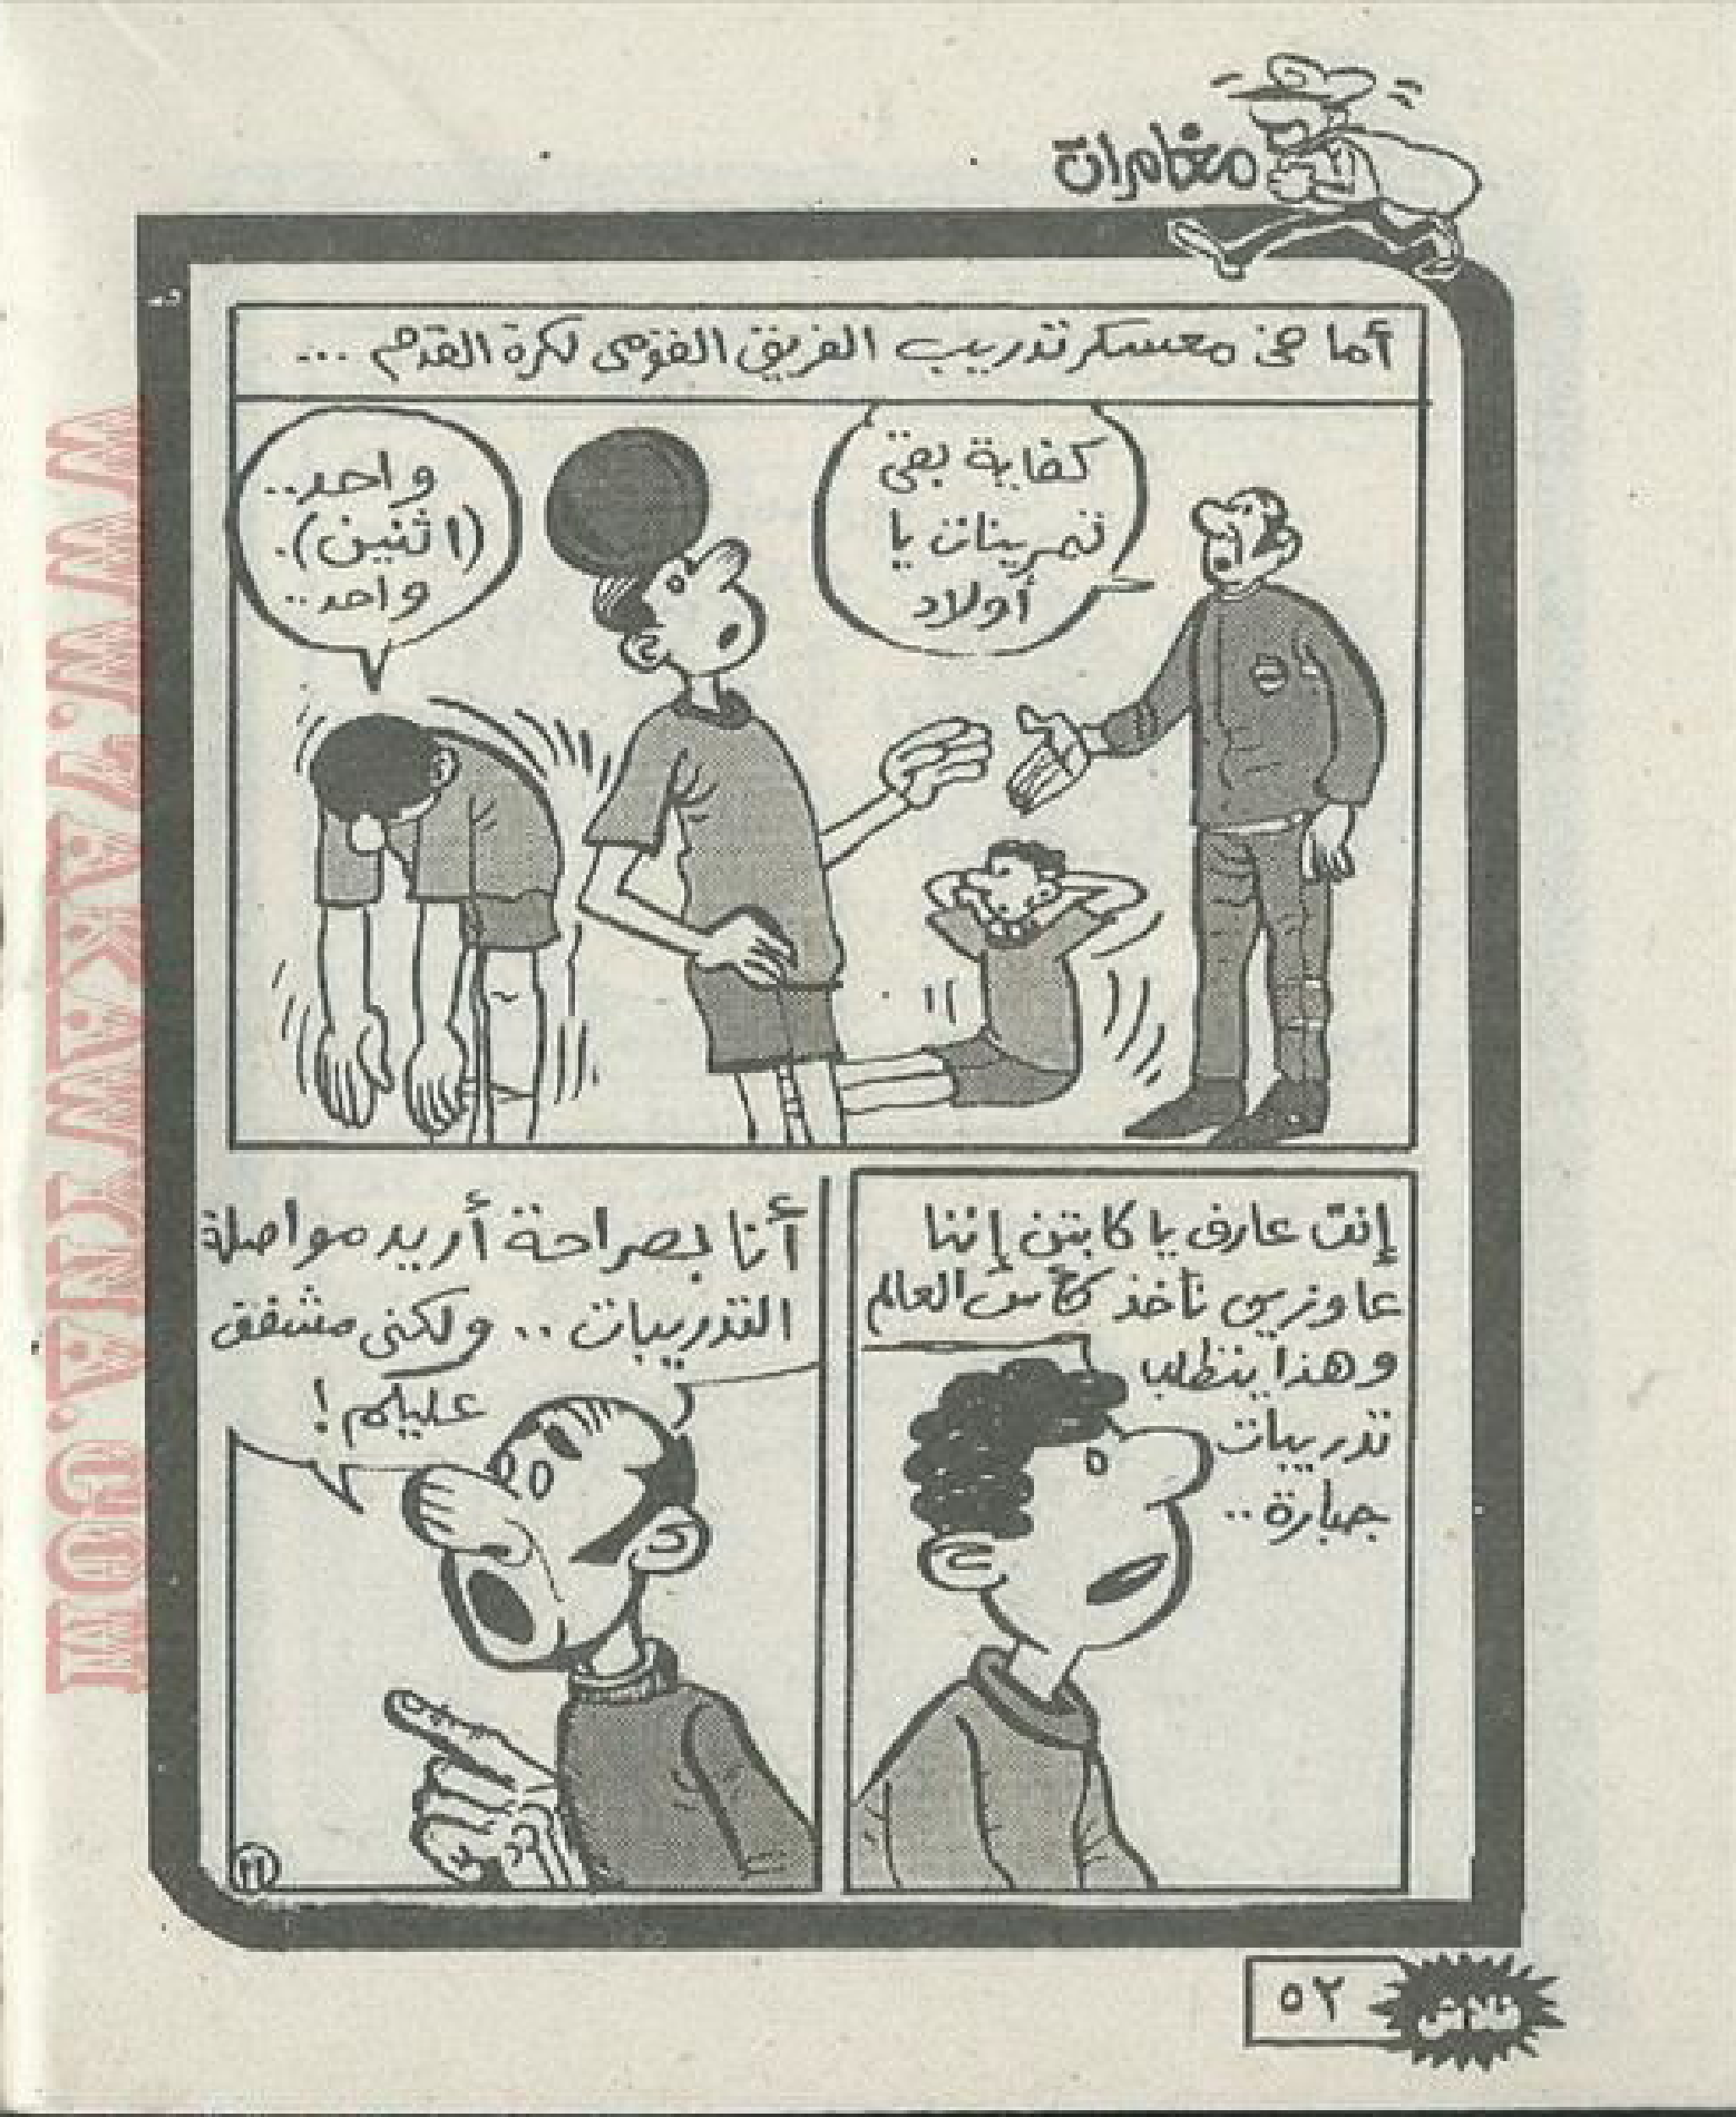 مغامرات
أما في معسكر تدريب الفريق القومى لكرة القدم ...
كفاية بقى
تمرينات يا
أولاد
واحد..
(اثنين).
واحد..
إنت عارف يا كابتن إننا
عاوزين نأخذ كأس العالم
وهذا يتطلب
تدريبات
جبارة..
أنا بصراحة أريد مواصلة
التدريبات .. ولكنى مشفق
عليكم!
٢٦
فلاش
٥٢
WWW.7AKAWITNA.COM